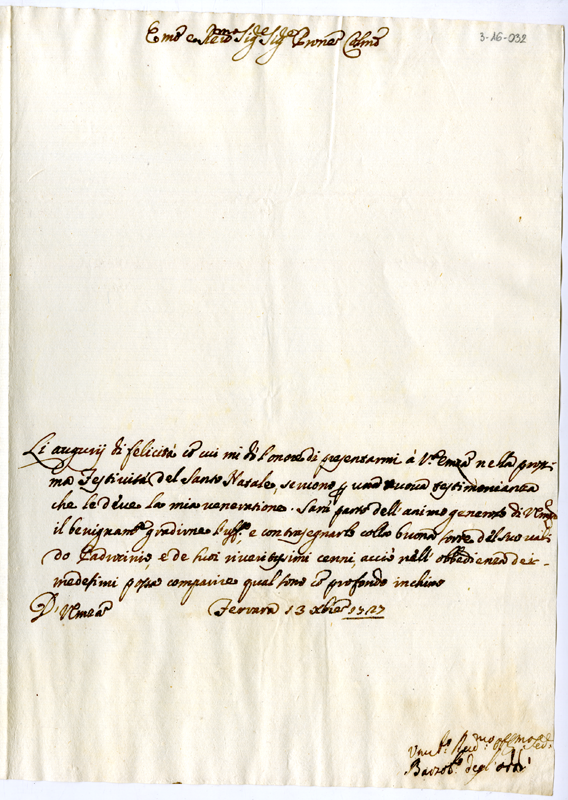 3-16-032
Emo e Rmo Sig.e Sig.e Prone Colmo
Li augurij di felicità cō cui mi dò l'onore di presentarmi à V.ra Emza nella pross-
ma Festività del Santo Natale, servono p una nuova testimonianza
che le deve la mia veneratione. Sarà parte dell'animo generoso di V.Emza
il benignam.te gradirne l'uff.o e contrasegnarlo colla buona sorte del suo vali-
do Padrocinio, e de suoi riveritissimi cenni, acciò nell'obbedienza dei
medesimi possa comparire qual sono cō profondo inchino
D' V.Emza Ferrara 13 Xbre 1727
Bartol.o degl'